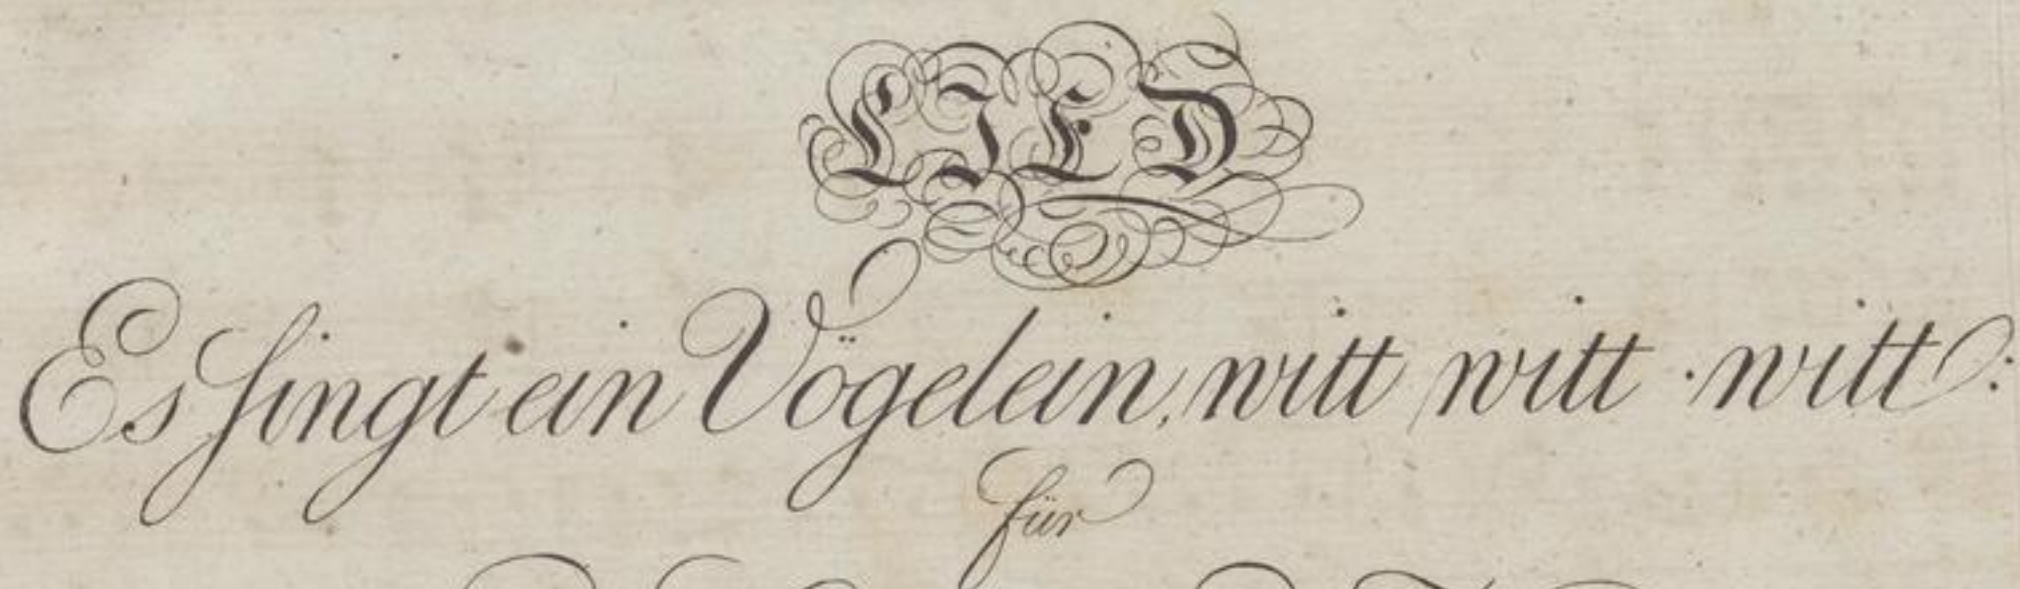 LIED
Es singt ein Vögelein, witt witt witt:
für